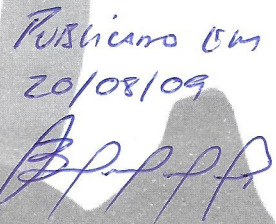 Publicado em
20/08/09